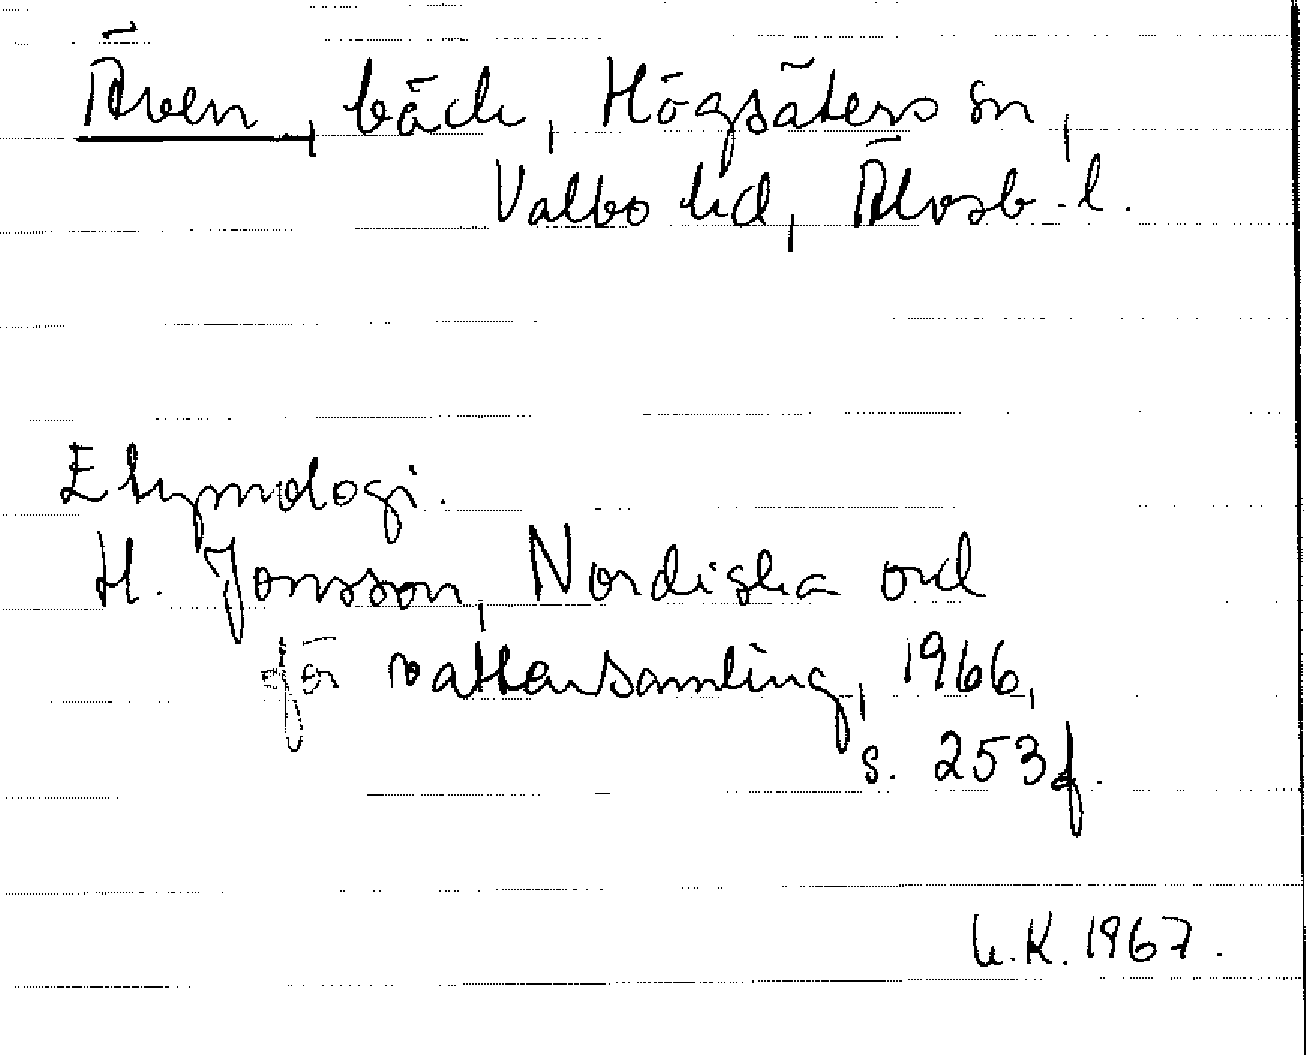 Även, bäck, Högsäters sn,
Valbo hd, Älvsb. l.
Etymologi.
H. Jonsson, Nordiska ord
för vattensamling, 1966,
s. 253 f.
L.K. 1967.